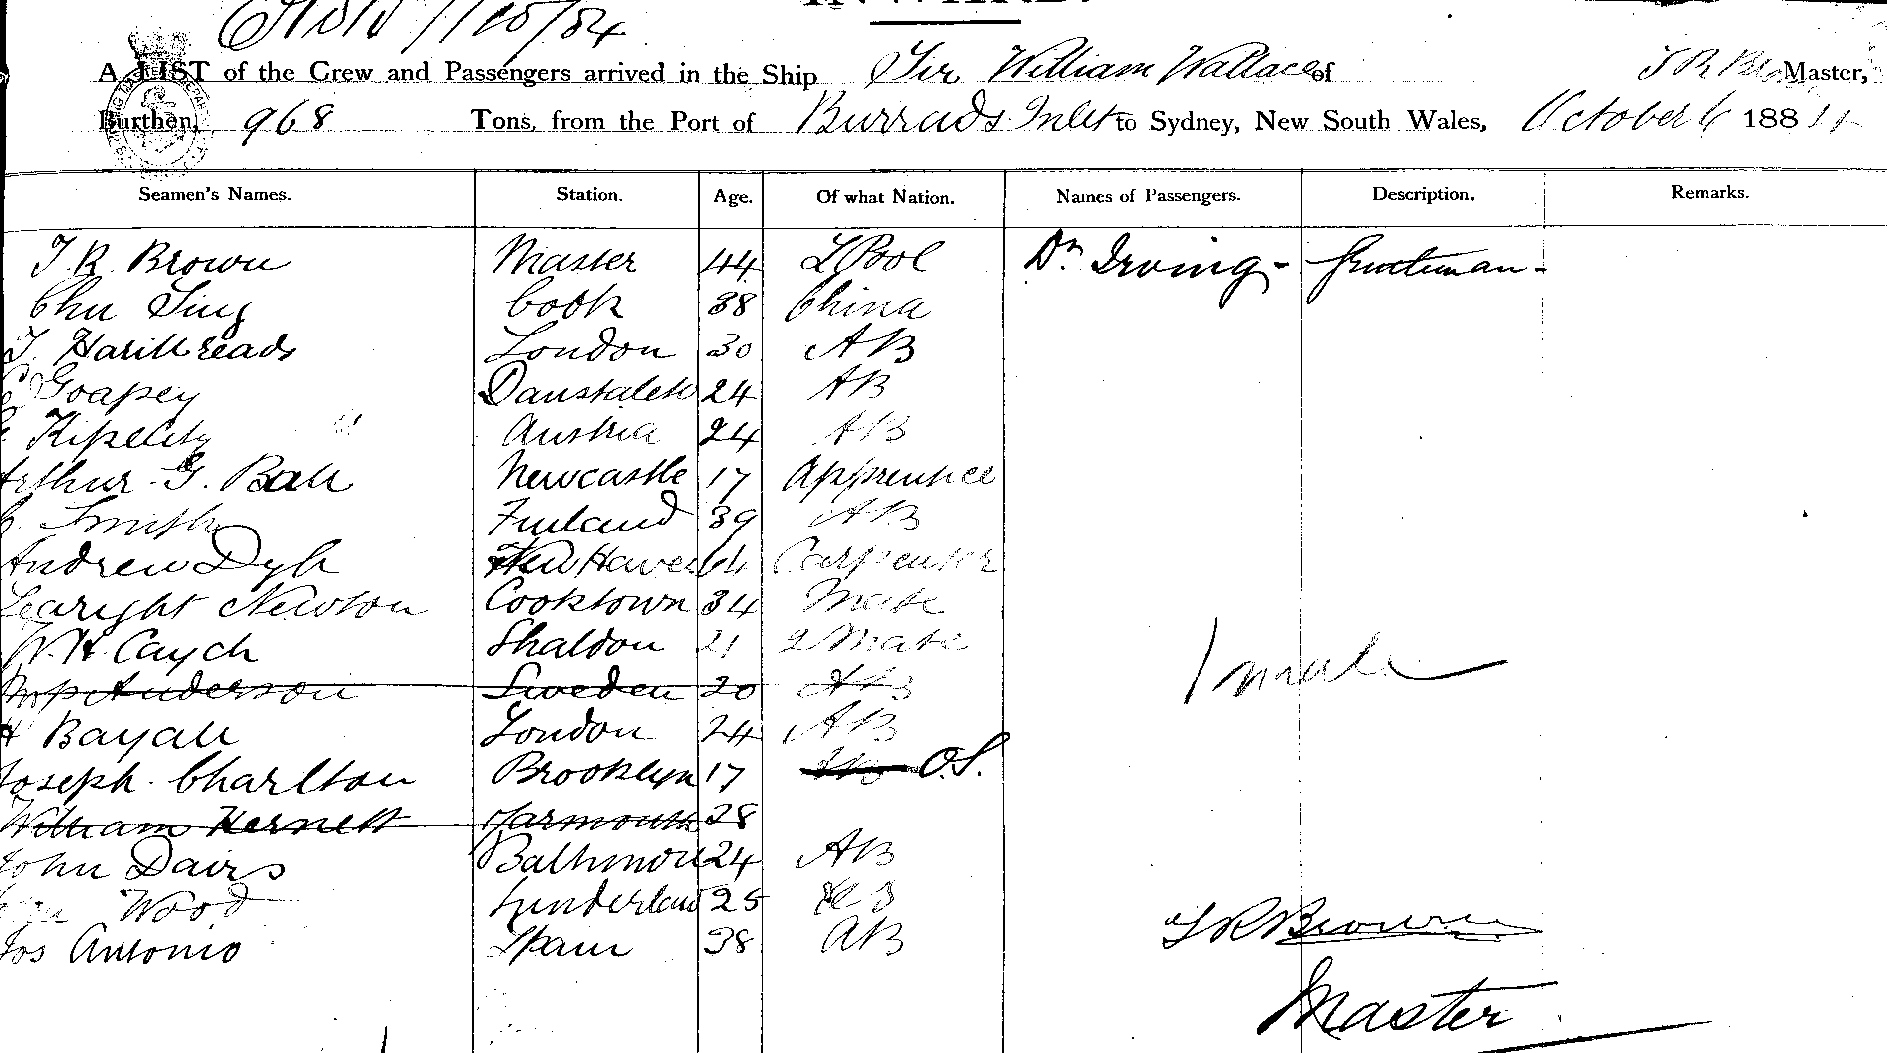 INWARD.
A LIST of the Crew and Passengers arrived in the Ship Sir William Wallace of T R Brown Master,
Burthen, 968 Tons, from the Port of Burrads Inlet to Sydney, New South Wales, October 6 1884
Seamen's Names. Station. Age. Of what Nation. Names of Passengers. Description. Remarks.
T. R. Brown Master 44 LPool Dr Irving - Gentleman -
Chu Sing Cook 38 China
T. Harillreads London 30 AB
Goapey 24 AB
Austria 24 AB
Arthur G. Ball Newcastle 17 Apprentice
Smith Finland 39 AB
Andrew Dyh New Haven 64 Carpenter
Searight Newton Cooktown 34 Mate
W. H. Caych Shaldon 21 2 Mate
1 male
Anderson Sweden 20 AB
H Bayall London 24 AB
Joseph Charlton Brooklyn 17 O.S.
William Hernett Yarmouth 28
John Davis Baltimore 24 AB
Wood Sunderland 25
T R Brown
Jos Antonio Spain 38 AB
Master